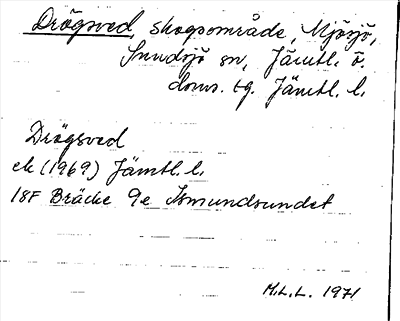 Drögsved, skogsområde, Mjösjö,
Sundsjö sn, Jämtl. ö.
doms. tg. Jämtl. l.
Drögsved
ek (1969) Jämtl. l.
18F Bräcke 9e Ismundsundet
M.L.L. 1971